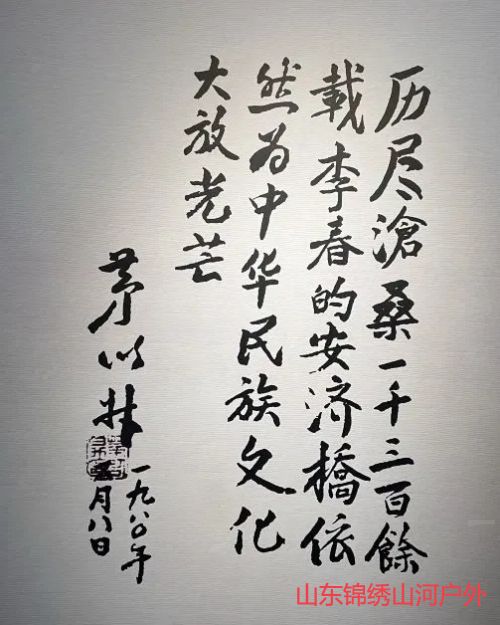 历尽滄桑一千三百餘
載李春的安济橋依
然为中华民族文化
大放光芒
茅以升
一九八〇年
月八日
山东锦绣山河户外